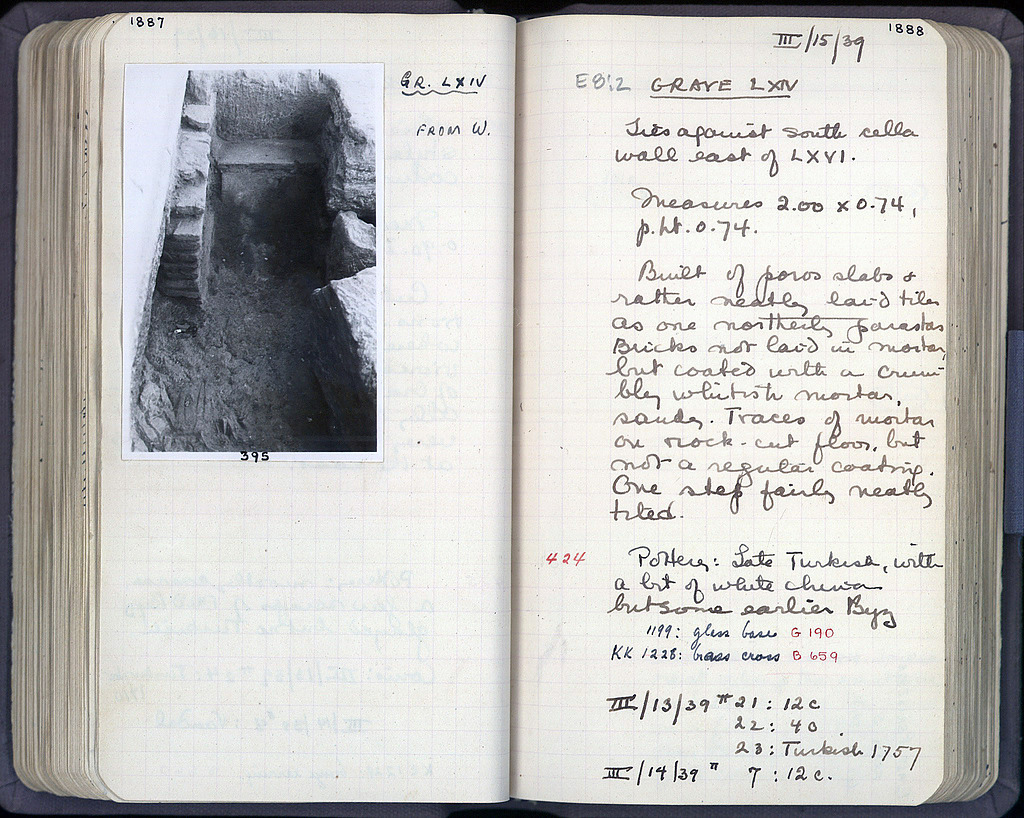 1887
GR. LXIV
FROM W.
395
1888
III/15/39
E8:2 GRAVE LXIV
Lies against south cella
wall east of LXVI.
Measures 2.00 x 0.74,
p.ht. 0.74.
Built of poros slabs &
rather neatly laid tiles
as one northerly parastas
Bricks not laid in mortar,
but coated with a crum-
bly whitish mortar,
sandy. Traces of mortar
on rock-cut floor, but
not a regular coating.
One step fairly neatly
tiled.
424 Pottery: Late Turkish, with
a bit of white china
but some earlier Byz
1199: glass base G 190
KK 1228: brass cross B 659
III/13/39 # 21 : 12c
22 : 40
23 : Turkish 1757
III/14/39 # 7 : 12c.